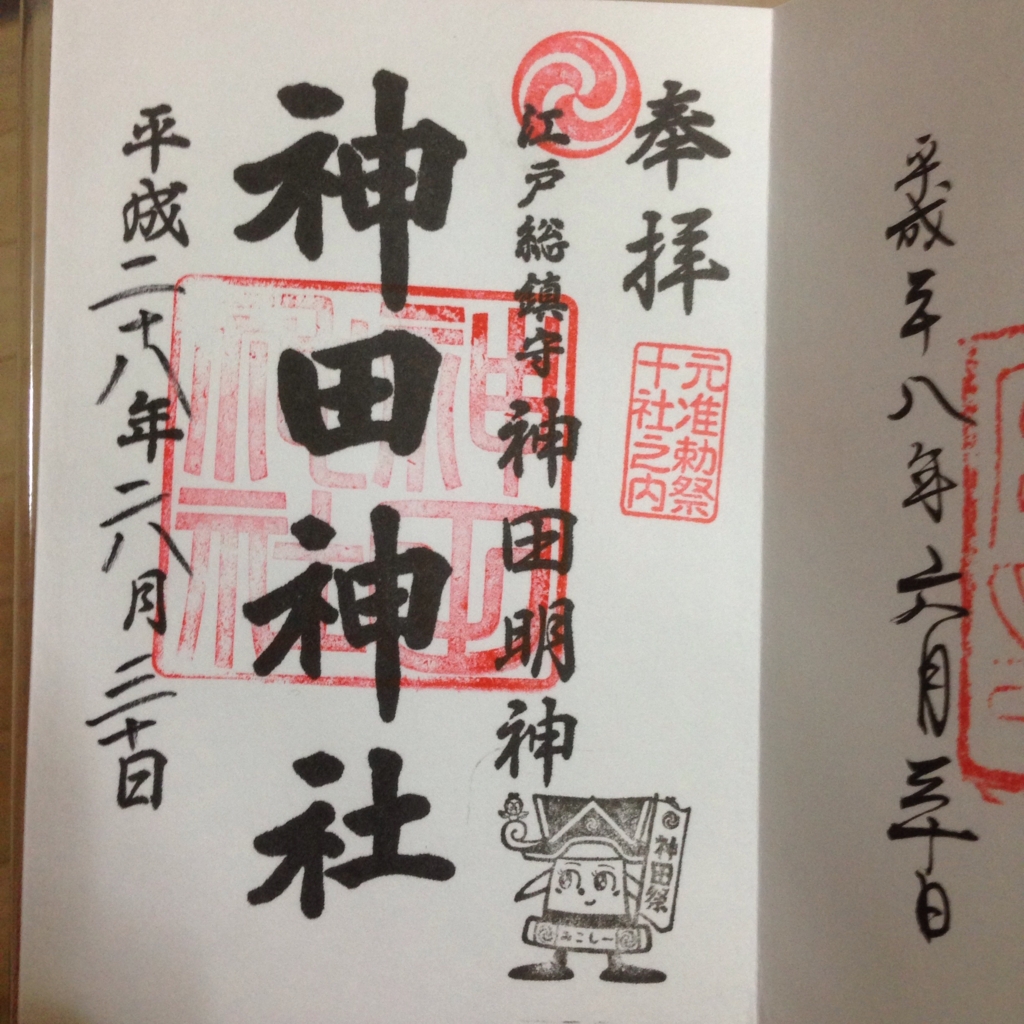 平成二十八年六月三十日
奉拝
元准勅祭
十社之内
江戸総鎮守 神田明神
神田祭
みこしー
神田神社
平成二十八年六月三十日